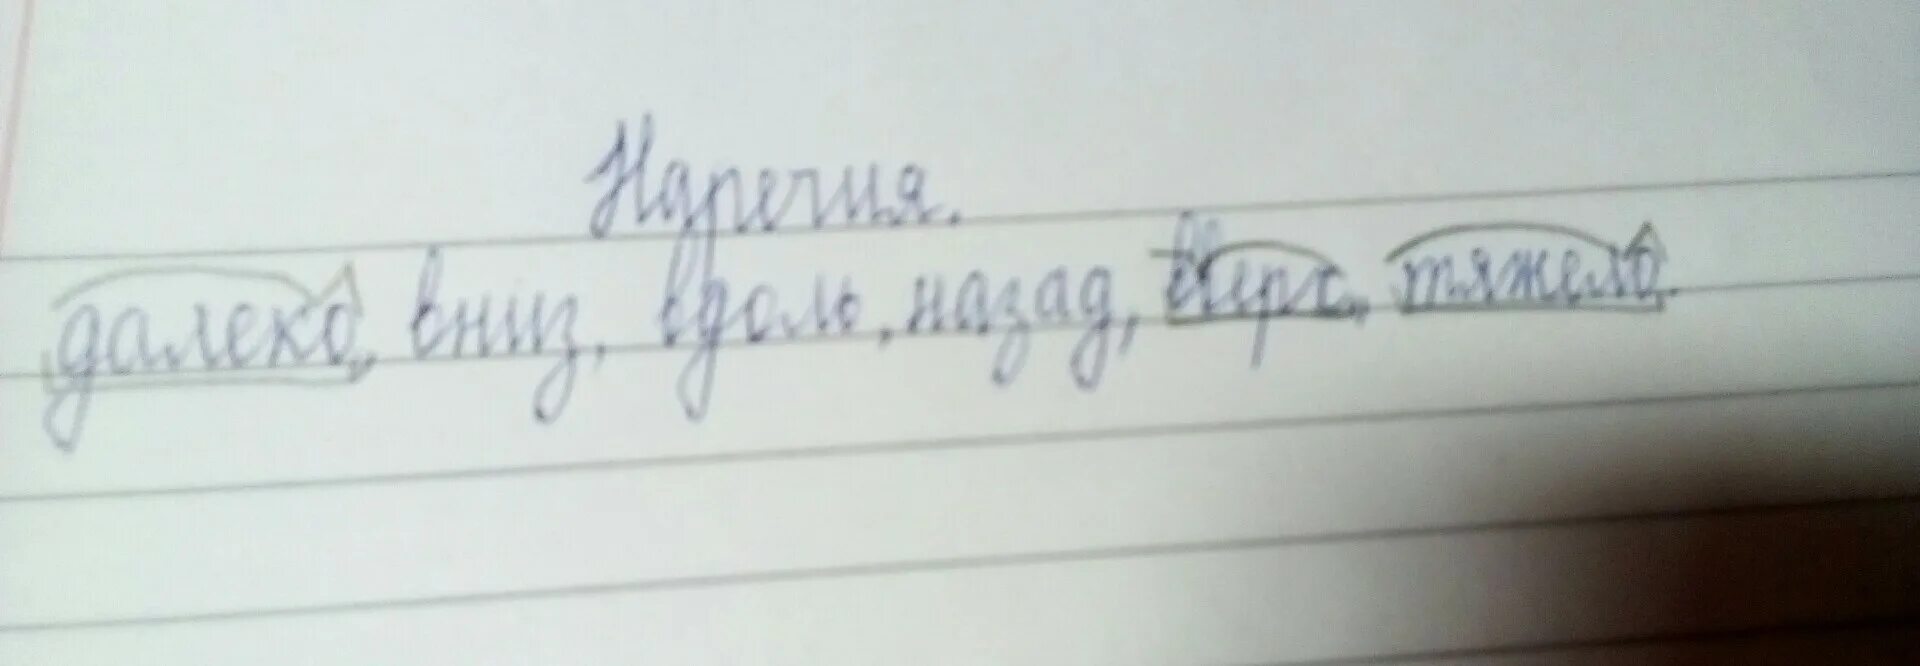 Наречия.
далеко, вниз, вдоль, назад, вверх, тяжело.